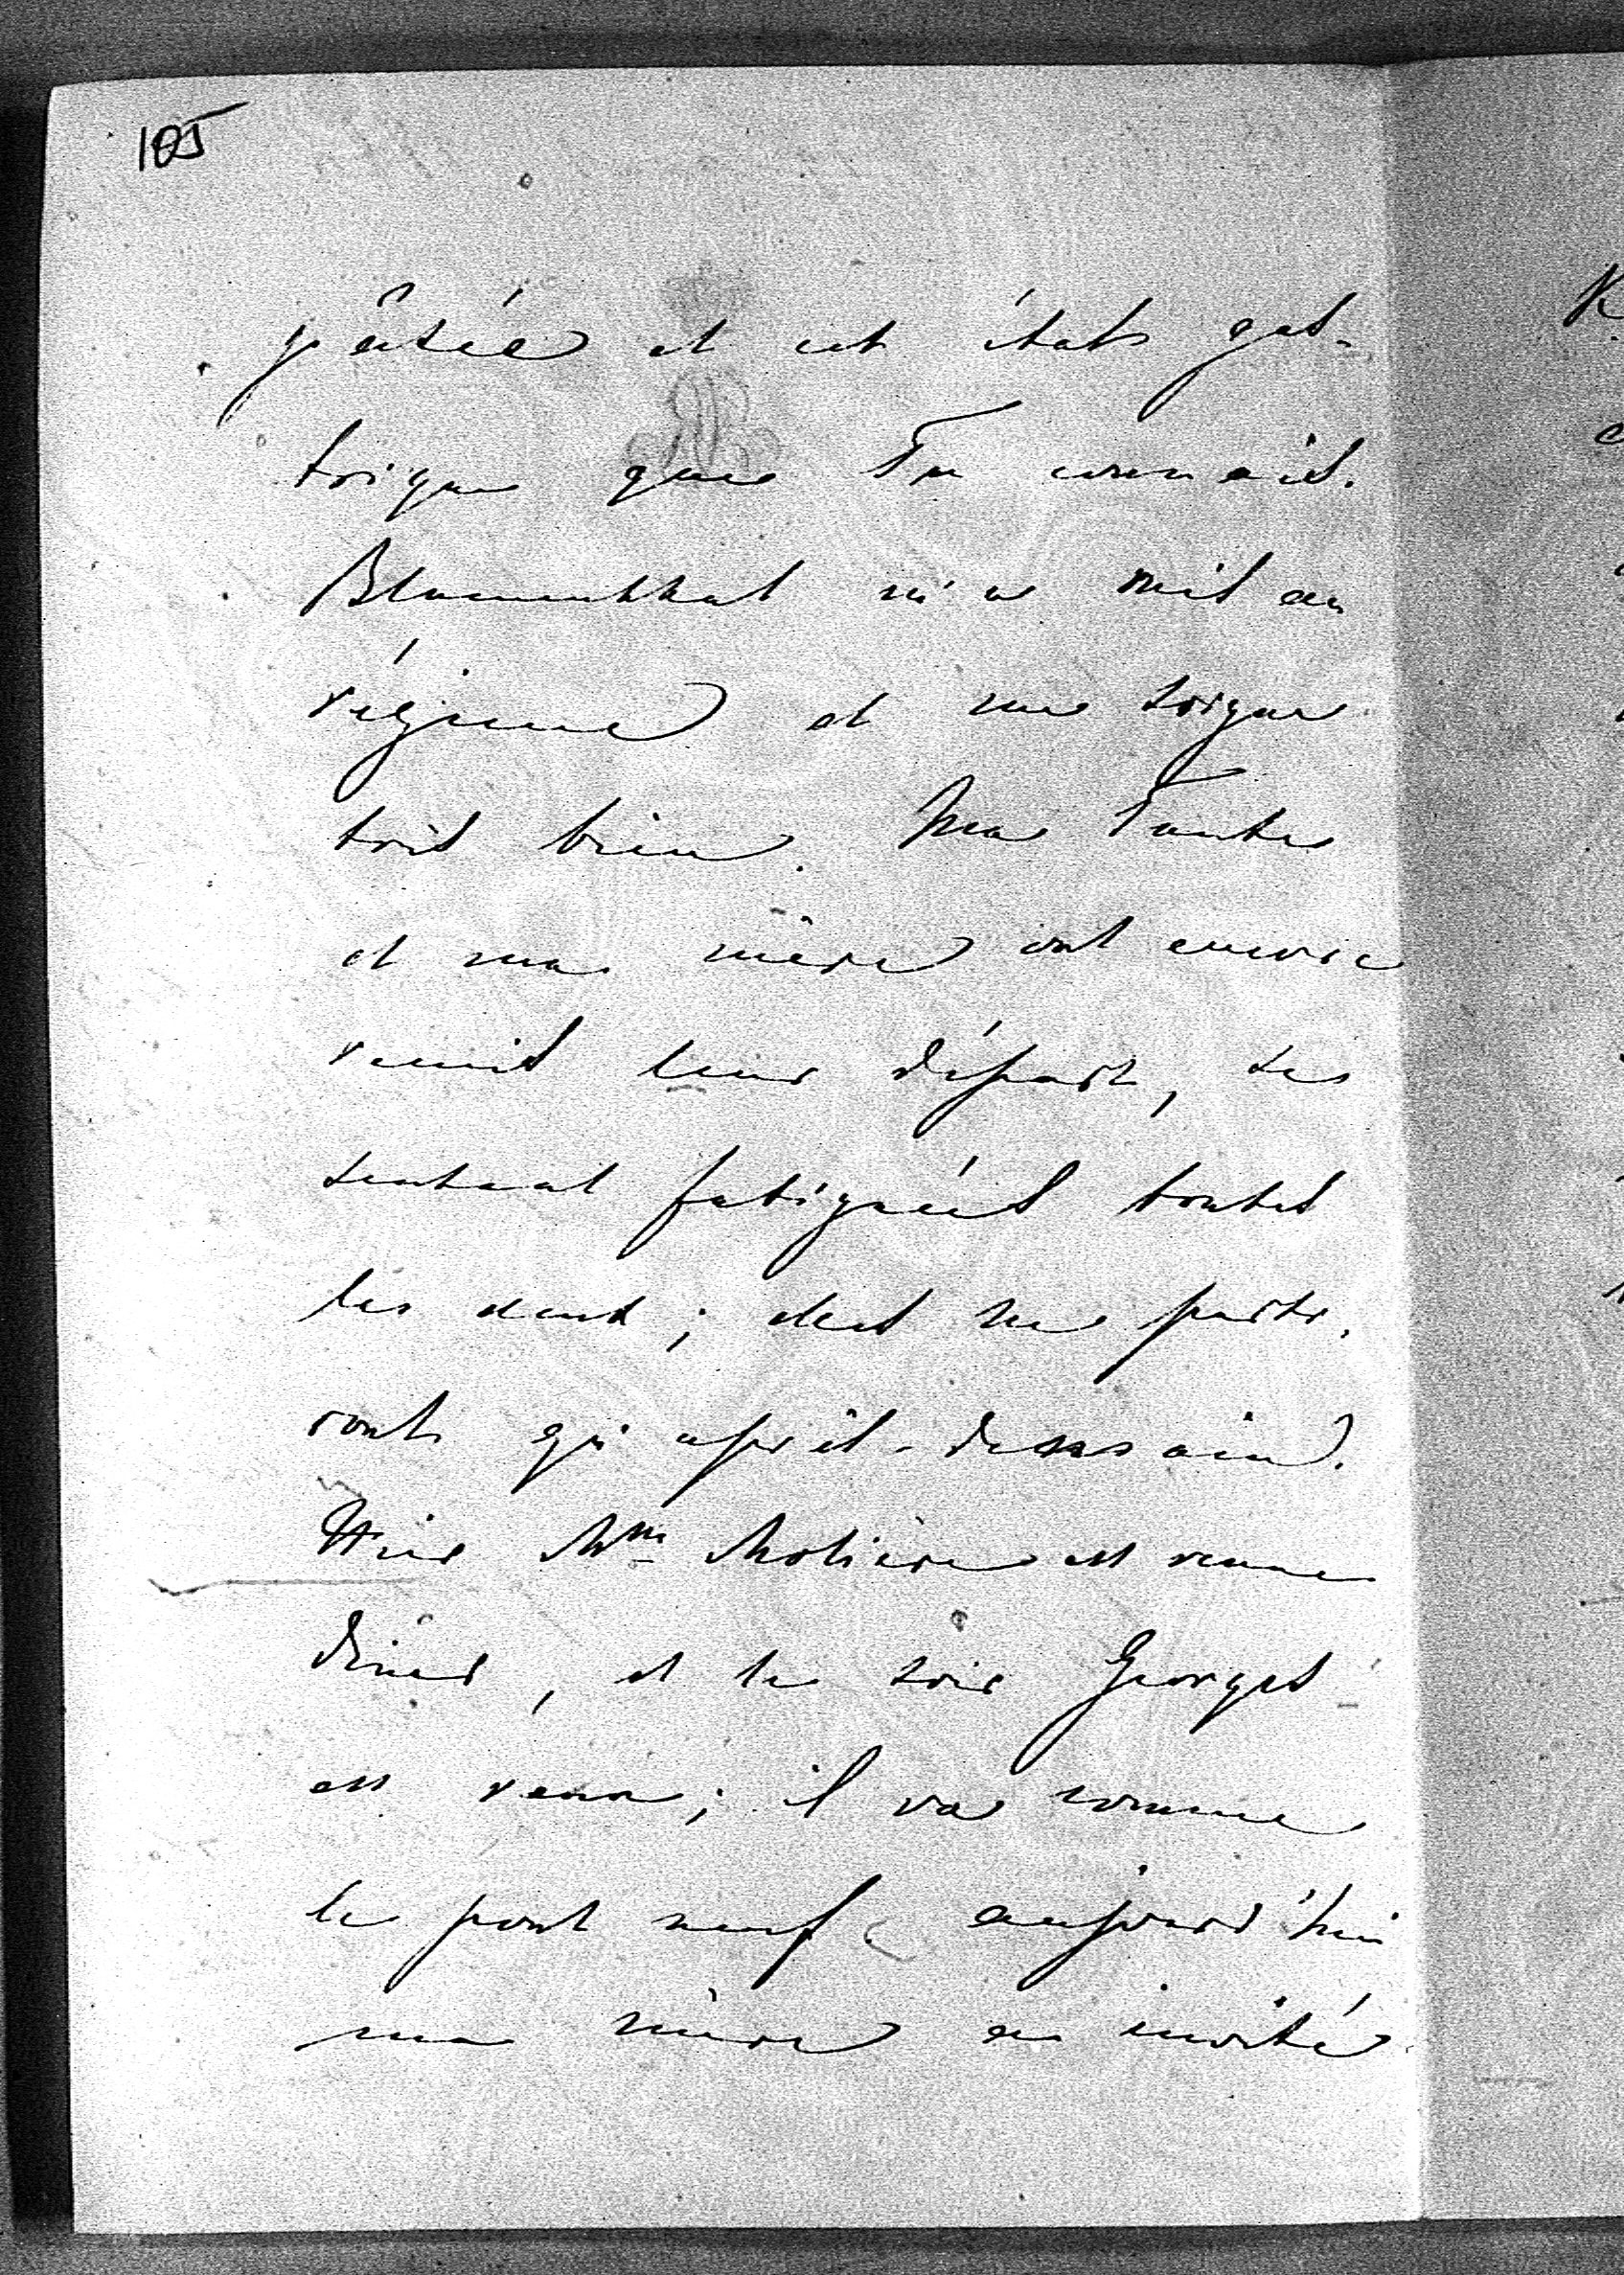 105
pâtée et cet état gas-
trique que Tu connais.
Blumenthal m'a mis au
régime et me soigne
très bien. Ma Tante
et ma mère ont encore
remis leur départ, se
sentant fatiguées toutes
les deux; elles ne parti-
ront qu'après-demain.
Hier Mme Molière est venue
dîner, et le soir Georges
est venu; il va comme
le pont neuf. aujourd'hui
ma mère a invité